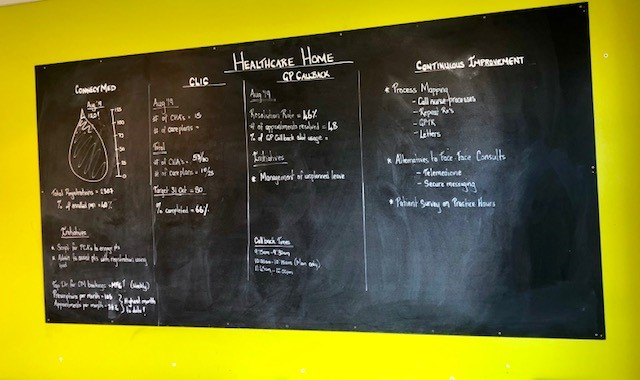 HEALTHCARE HOME
CONNECT MED
Aug '19
125
100
75
50
25
0
Total Registrations = 2307
% of enrolled pts =
Initiatives
* Script for
* Admin to assist pts with registration using
(Weekly)
Prescriptions per month =
Appointments per month =
Highest month to date!
CLIC
Aug '19
# of CHA's = 15
# of careplans =
Total
# of CHA's =
# of careplans = 19/25
Target 31 Oct = 80
% completed = 66%
GP CALLBACK
Aug '19
Resolution Rate = 46%
# of appointments resolved = 48
% of GP Callback slot usage =
Initiatives
* Management of unplanned leave
Call back Times
9.15am - 9.30am
CONTINUOUS IMPROVEMENT
* Process Mapping
- Call nurse processes
- Repeat Rx's
- Letters
* Alternatives to Face Face Consults
- Telemedicine
- Secure messaging
* Patient Survey on Practice Hours